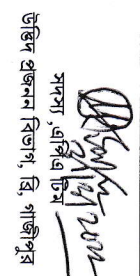 সদস্য, এপিএ টিম
উদ্ভিদ প্রজনন বিভাগ, ব্রি, গাজীপুর